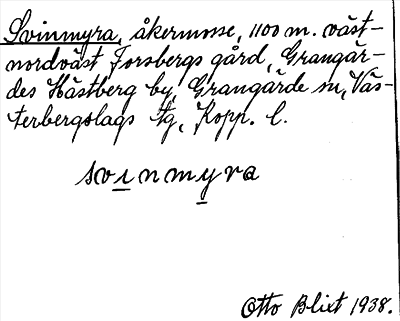 Svinmyra, åkermosse, 1100 m. väst-
nordväst Forsbergs gård, Grangär-
des Hästberg by, Grangärde sn, Väs-
terbergslags tg, Kopp. l.
svinmyra
Otto Blixt 1938.